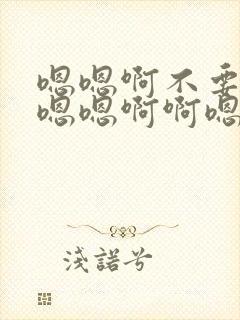 嗯嗯啊不要
嗯嗯啊啊嗯
淺諾兮